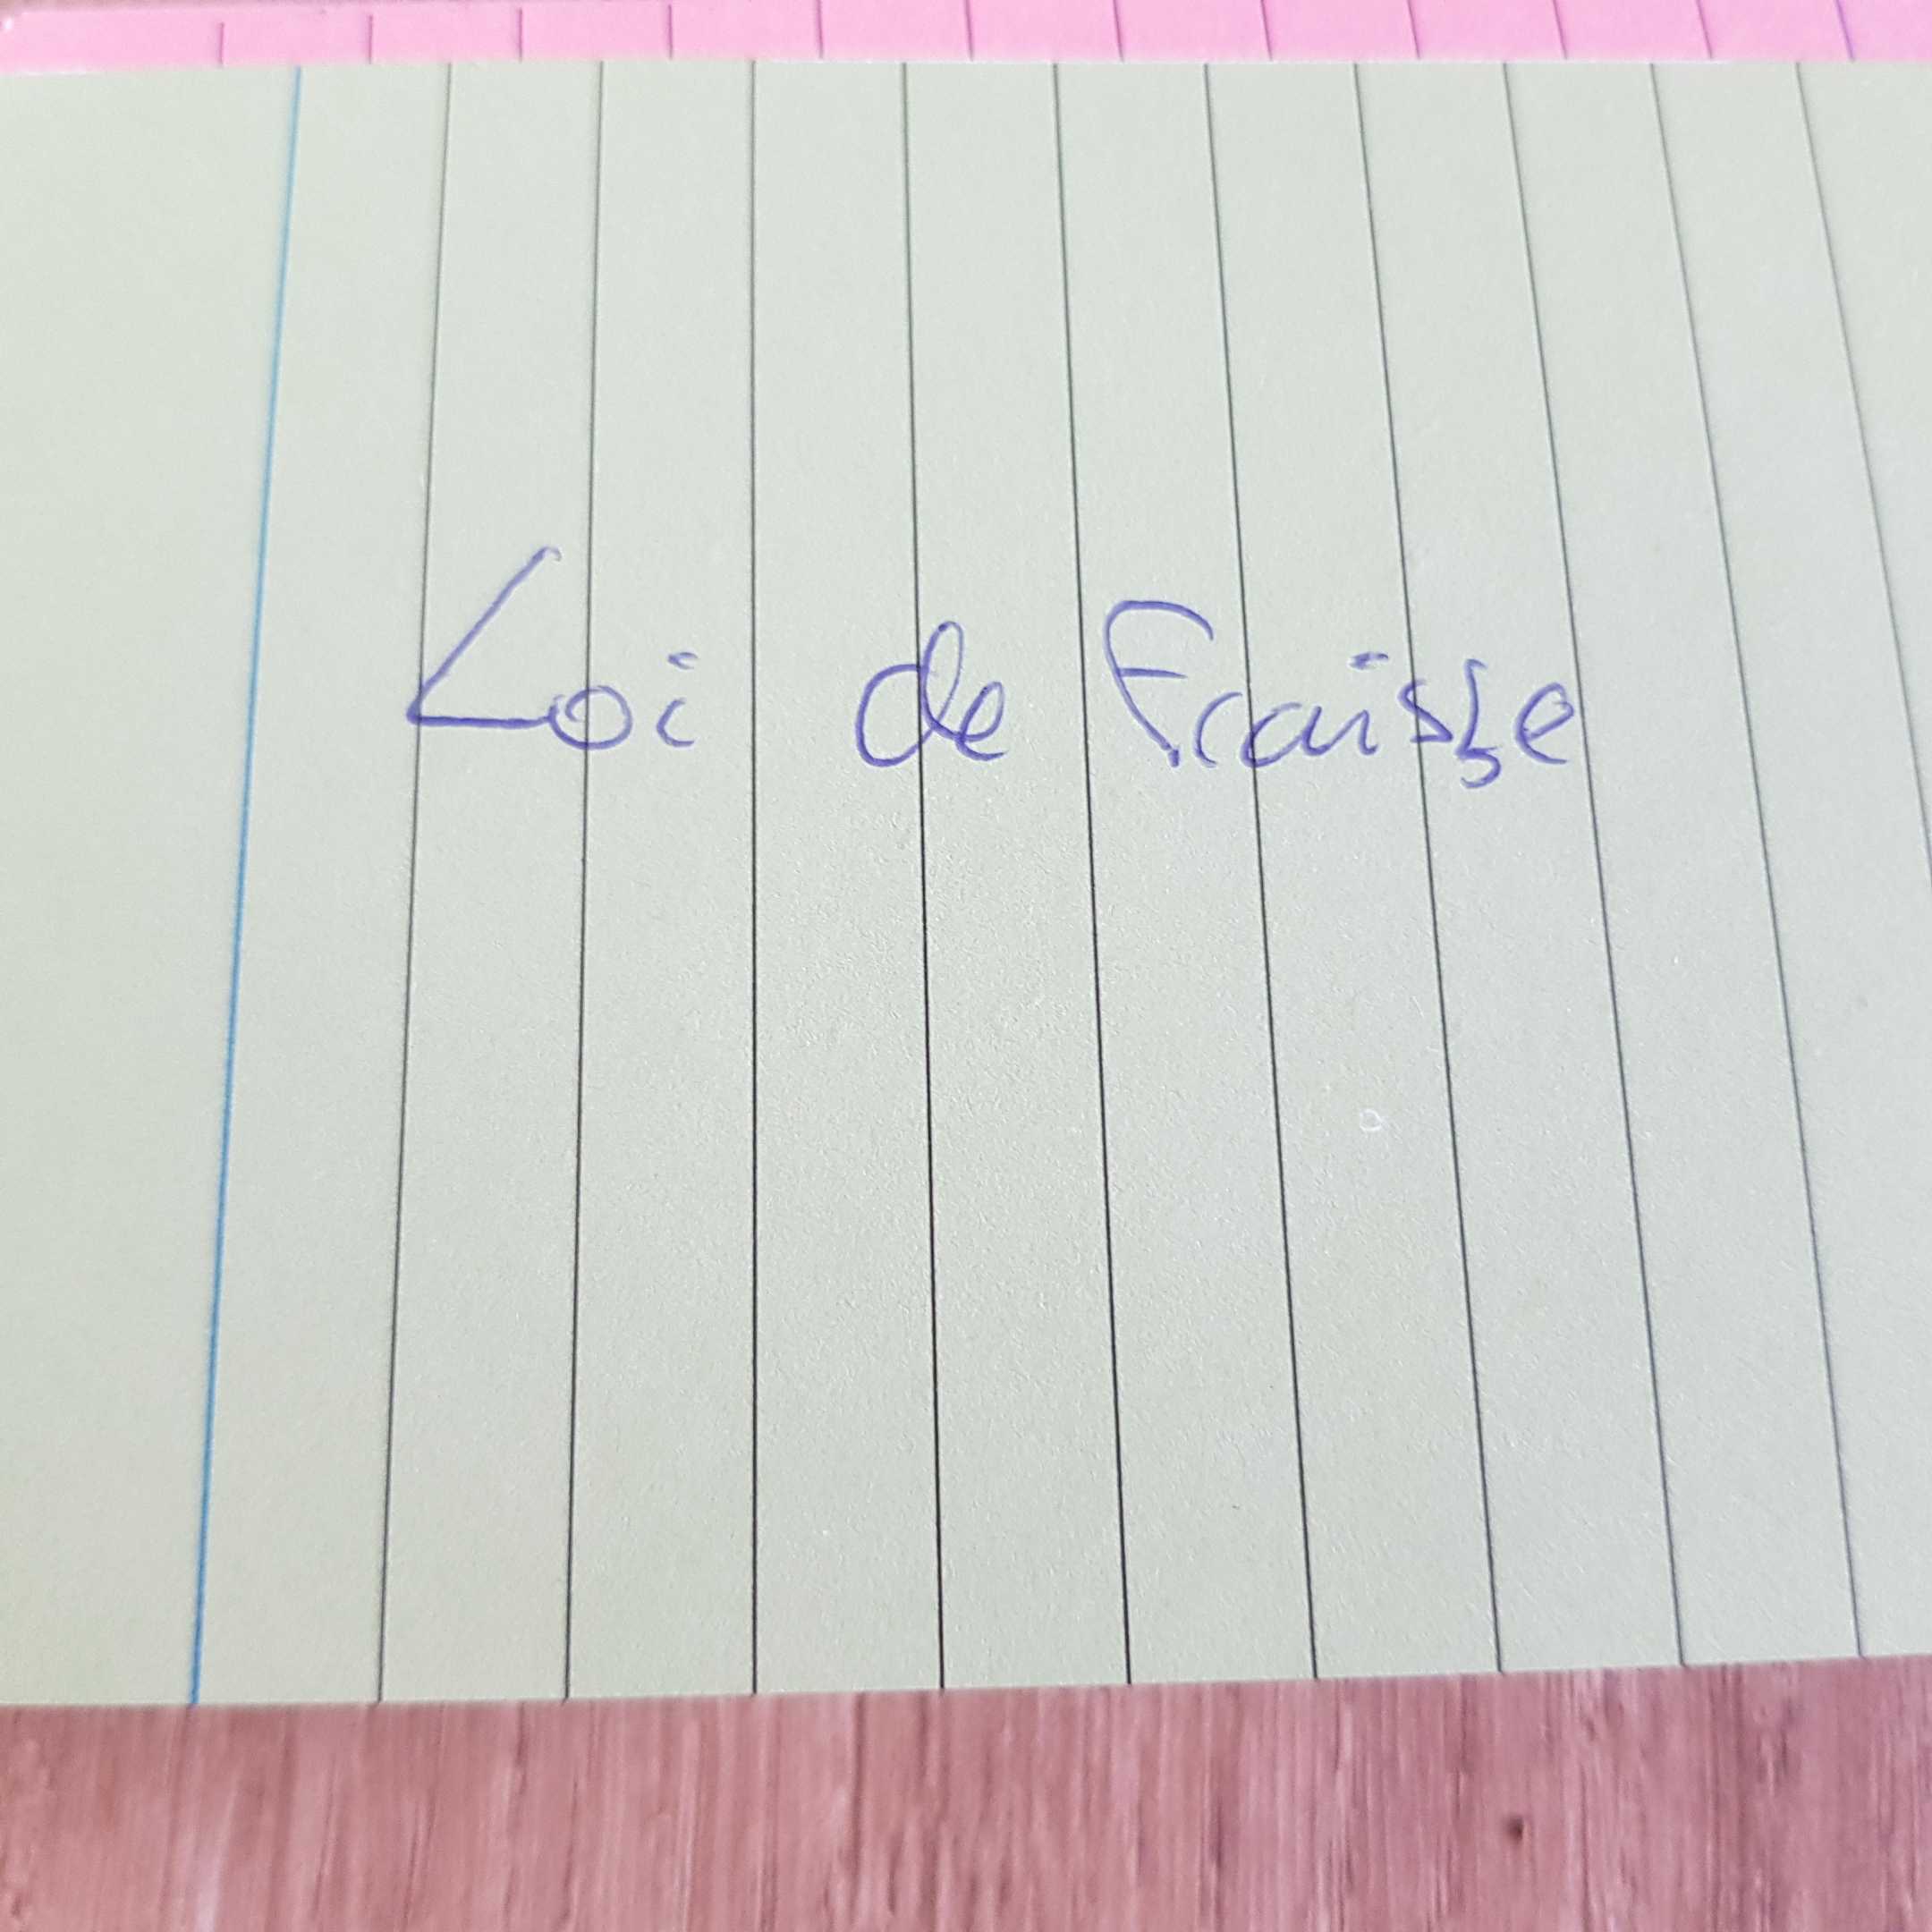 Loi de Fraisse